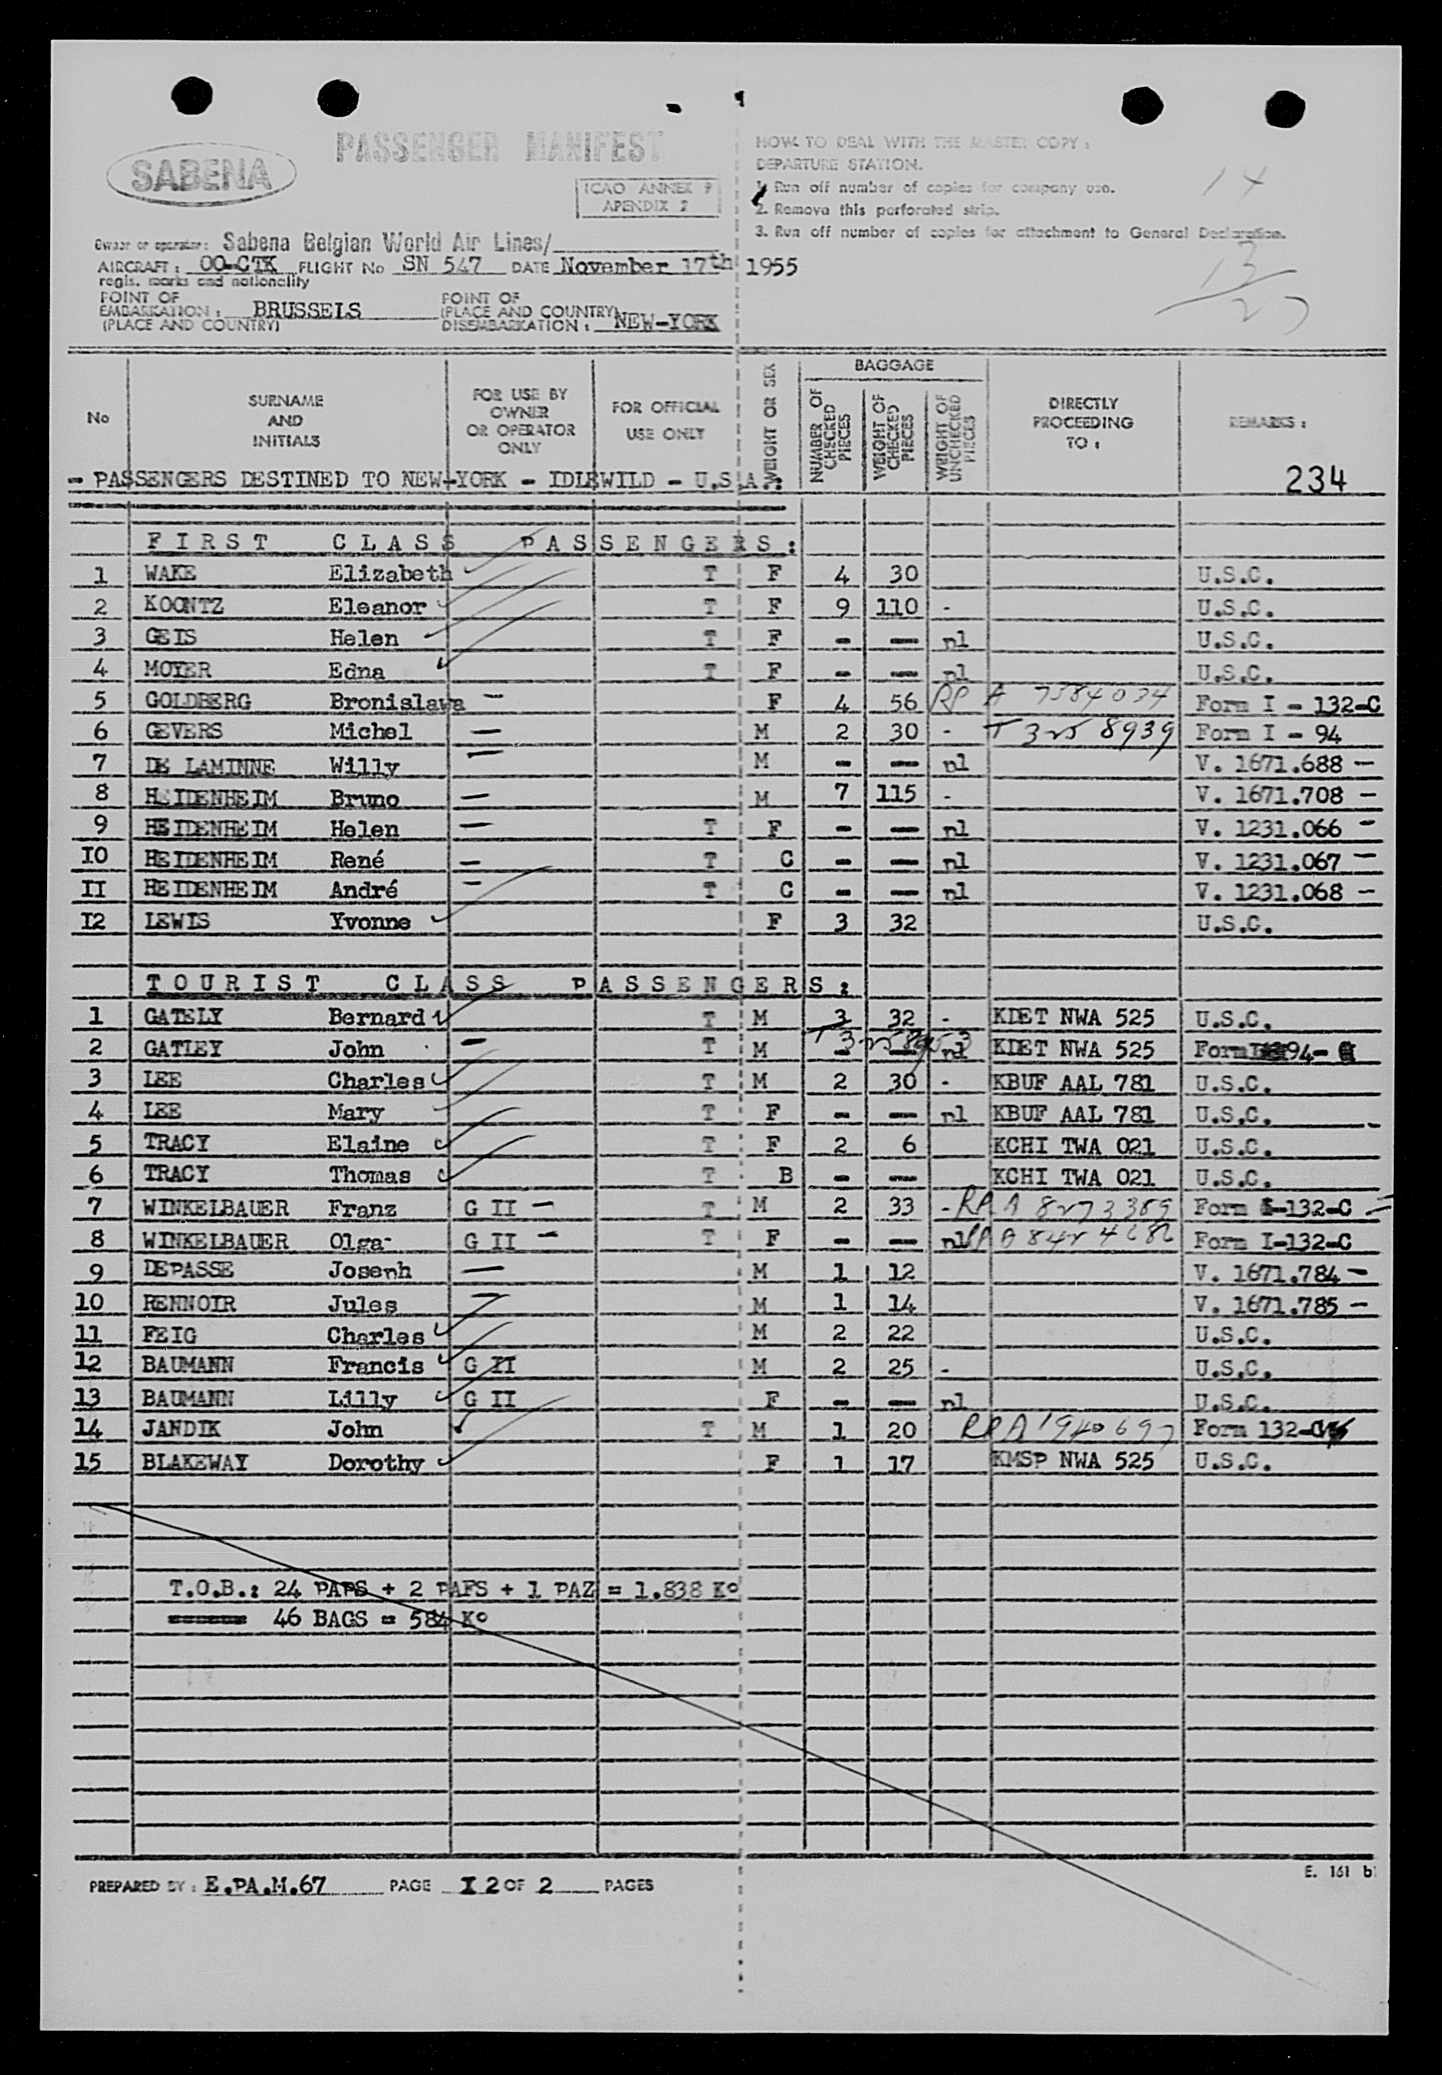 PASSENGER MANIFEST
SABENA
ICAO ANNEX 9
APENDIX 2
HOW TO DEAL WITH THE MASTER COPY :
DEPARTURE STATION.
1. Run off number of copies for company use.
2. Remove this perforated strip.
3. Run off number of copies for attachment to General Declaration.
14
13
27
Owner or operator: Sabena Belgian World Air Lines/
AIRCRAFT : OO-CTK FLIGHT No SN 547 DATE November 17th 1955
regis. marks and nationality
POINT OF EMBARKATION : BRUSSELS
(PLACE AND COUNTRY)
POINT OF
(PLACE AND COUNTRY)
DISEMBARKATION : NEW-YORK
No
SURNAME AND INITIALS
FOR USE BY OWNER OR OPERATOR ONLY
FOR OFFICIAL USE ONLY
WEIGHT OR SEX
BAGGAGE
NUMBER OF CHECKED PIECES
WEIGHT OF CHECKED PIECES
WEIGHT OF UNCHECKED PIECES
DIRECTLY PROCEEDING TO :
REMARKS :
- PASSENGERS DESTINED TO NEW-YORK - IDLEWILD - U.S.A.:
234
FIRST CLASS PASSENGERS :
1 WAKE Elizabeth T F 4 30 U.S.C.
2 KOONTZ Eleanor T F 9 110 - U.S.C.
3 GEIS Helen T F - - nl U.S.C.
4 MOYER Edna T F - - nl U.S.C.
5 GOLDBERG Bronislawa - F 4 56 RP A 7384034 Form I - 132-C
6 GEVERS Michel - M 2 30 - T 325 8939 Form I - 94
7 DE LAMINNE Willy - M - - nl V. 1671.688 -
8 HEIDENHEIM Bruno - M 7 115 - V. 1671.708 -
9 HEIDENHEIM Helen - T F - - nl V. 1231.066 -
10 HEIDENHEIM René - T C - - nl V. 1231.067 -
11 HEIDENHEIM André - T C - - nl V. 1231.068 -
12 LEWIS Yvonne F 3 32 U.S.C.
TOURIST CLASS PASSENGERS :
1 GATELY Bernard T M 3 32 - KIET NWA 525 U.S.C.
2 GATLEY John - T M - - nl T 3258953 KIET NWA 525 Form 94-
3 LEE Charles T M 2 30 - KBUF AAL 781 U.S.C.
4 LEE Mary T F - - nl KBUF AAL 781 U.S.C.
5 TRACY Elaine T F 2 6 KCHI TWA 021 U.S.C.
6 TRACY Thomas T B - - KCHI TWA 021 U.S.C.
7 WINKELBAUER Franz G II - T M 2 33 - RP A 8273389 Form I-132-C -
8 WINKELBAUER Olga G II - T F - - nl RP A 842 4682 Form I-132-C
9 DEPASSE Joseph - M 1 12 V. 1671.784 -
10 RENNOIR Jules - M 1 14 V. 1671.785 -
11 FEIG Charles M 2 22 U.S.C.
12 BAUMANN Francis G II M 2 25 - U.S.C.
13 BAUMANN Lilly G II F - - nl U.S.C.
14 JANDIK John T M 1 20 RP A 1940697 Form 132-
15 BLAKEWAY Dorothy F 1 17 KMSP NWA 525 U.S.C.
T.O.B.: 24 PAPS + 2 PAFS + 1 PAZ = 1.838 K°
46 BAGS = 584 K°
E. 161 b
PREPARED BY : E.PA.M.67 PAGE 2 OF 2 PAGES